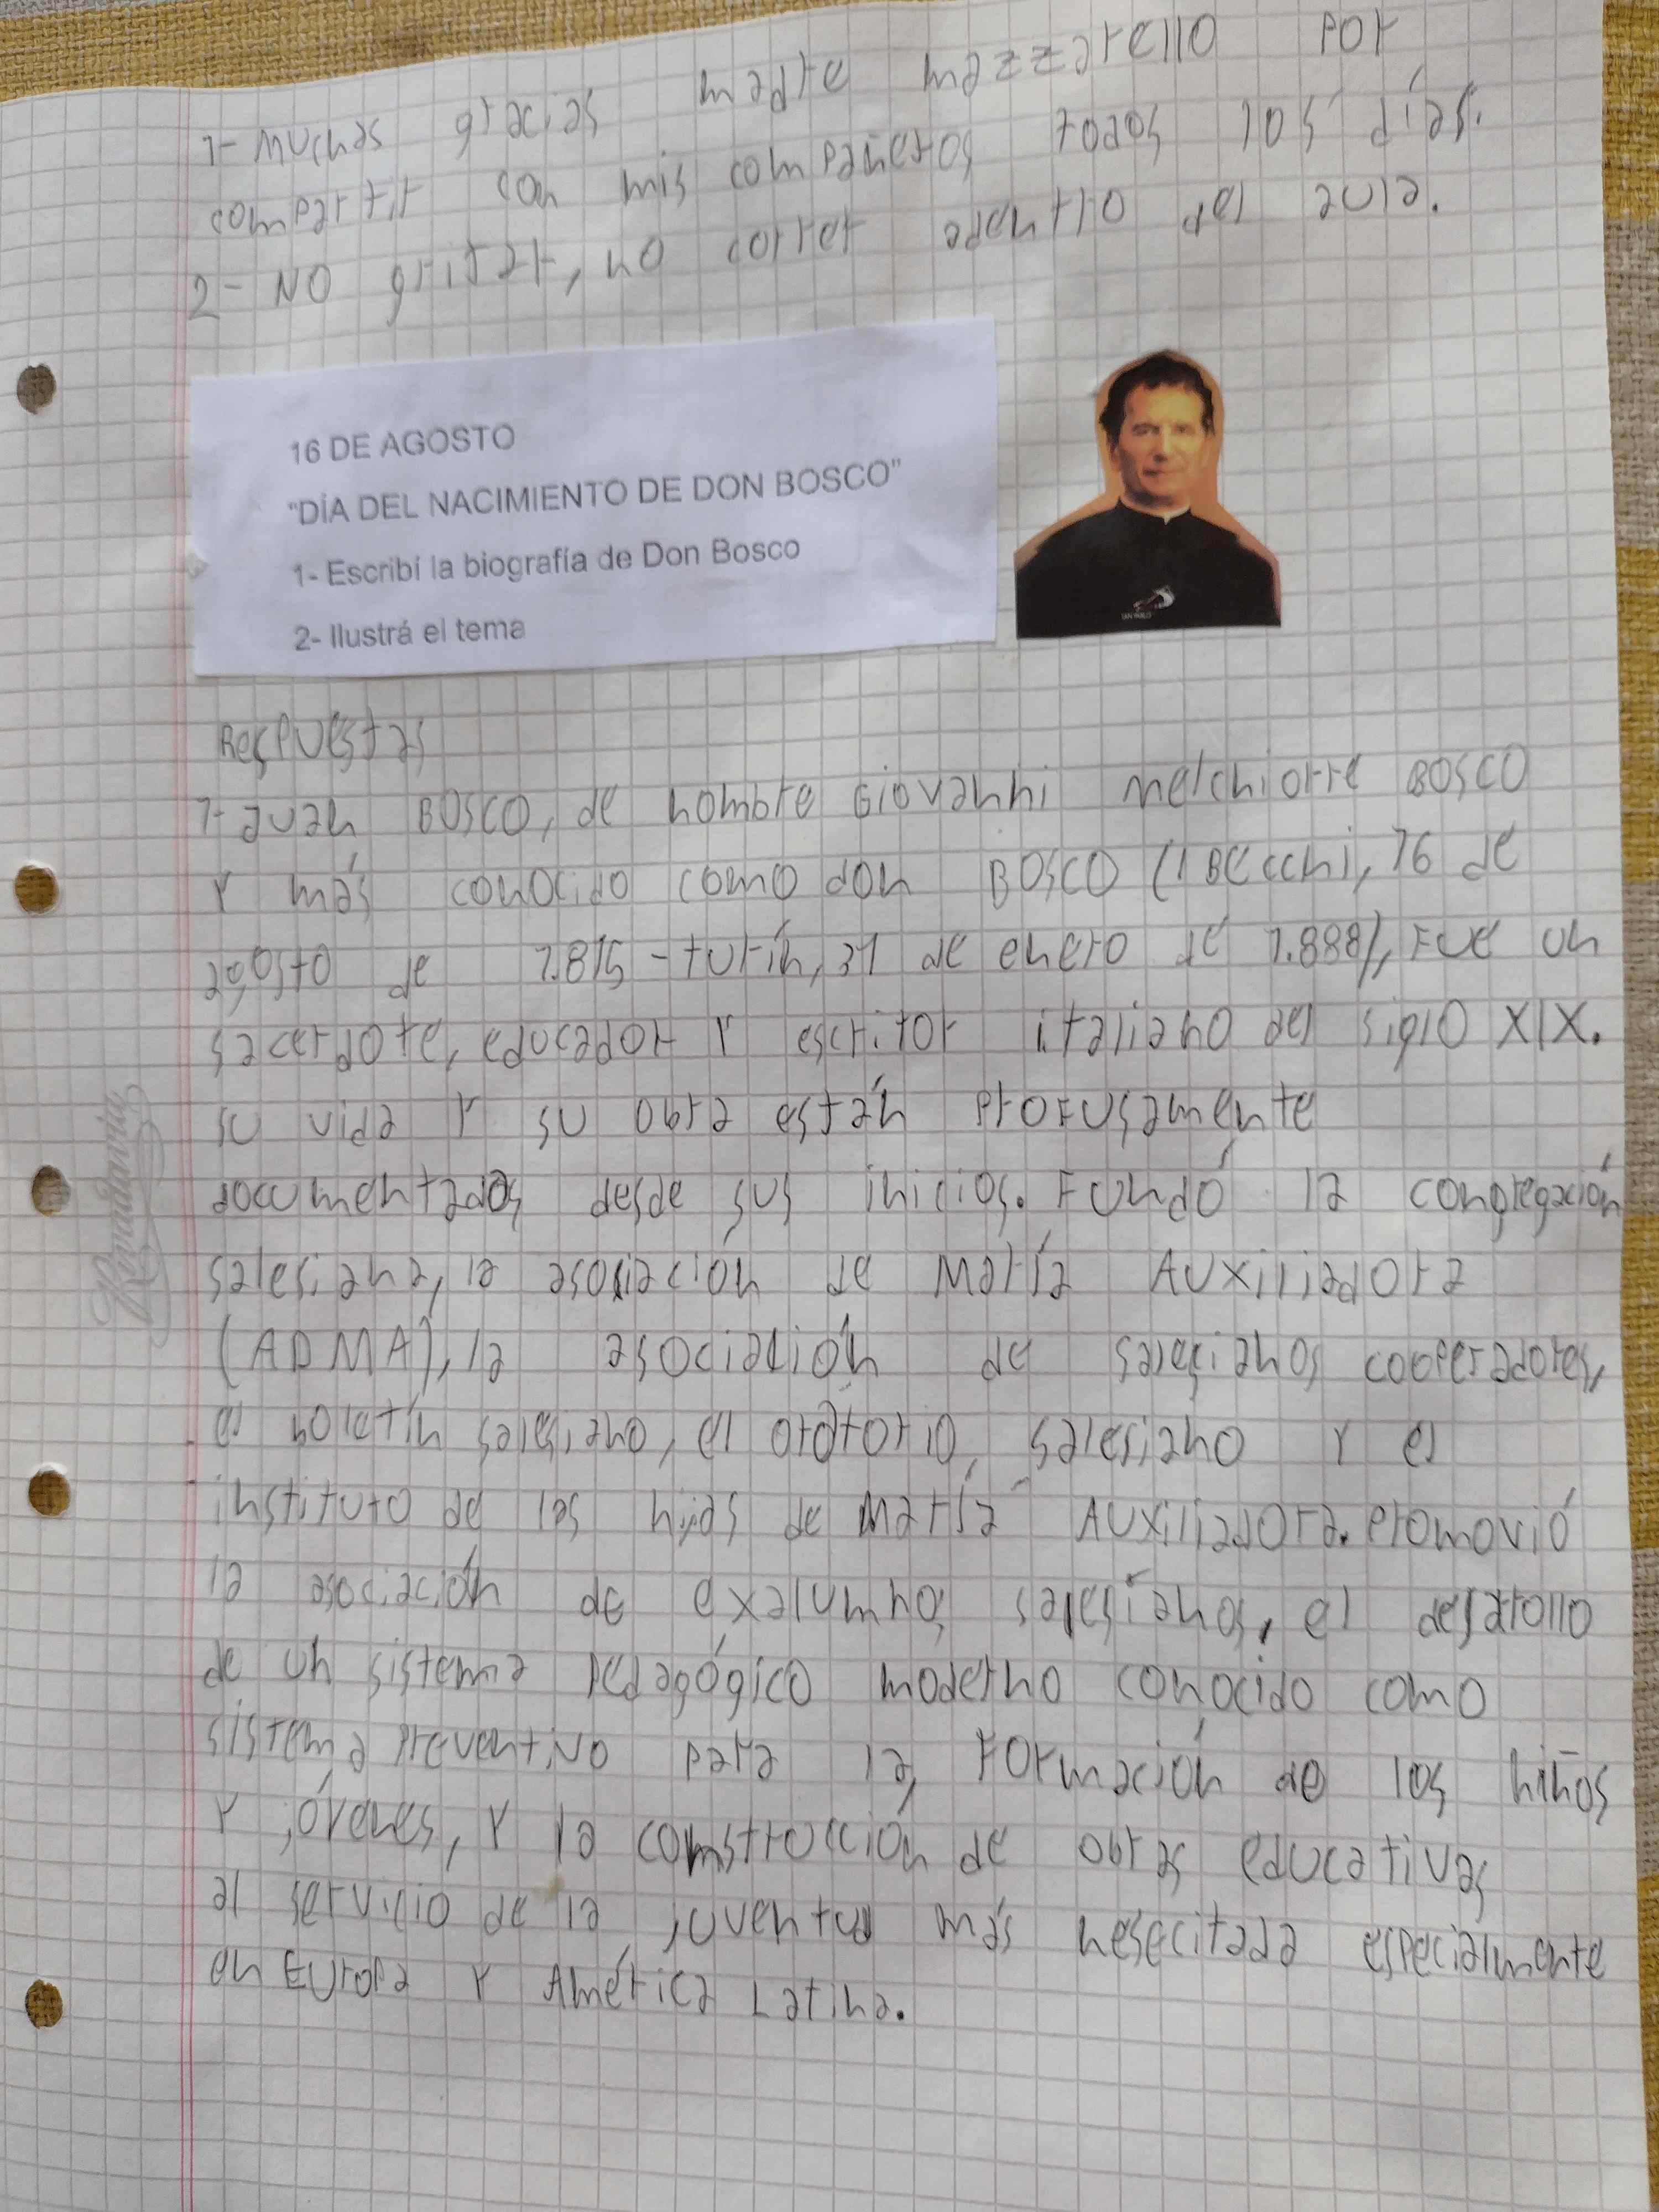 1- Muchas gracias madre mazzarello por
compartir con mis compañeros todos los días.
2- NO gritar, no correr adentro del aula.
16 DE AGOSTO
"DÍA DEL NACIMIENTO DE DON BOSCO"
1- Escribí la biografía de Don Bosco
2- Ilustrá el tema
SAN PABLO
Respuestas
1- Juan BOSCO, de nombre Giovanni Melchiorre BOSCO
Y más conocido como don BOSCO (I Becchi, 16 de
agosto de 1.815 - turín, 31 de enero de 1.888), Fue un
sacerdote, educador Y escritor italiano del siglo XIX.
su vida Y su obra están profusamente
documentados desde sus inicios. Fundó la congregación
salesiana, la asociación de María Auxiliadora
(ADMA), la asociación de salesianos cooperadores,
el boletín salesiano, el oratorio salesiano Y el
instituto de las hijas de María Auxiliadora. Promovió
la asociación de exalumnos salesianos, el desarrollo
de un sistema pedagógico moderno conocido como
sistema preventivo para la Formación de los niños
Y jóvenes, Y la comstrucción de obras educativas
al servicio de la juventud más nesecitada especialmente
en Europa Y América Latina.
Rivadavia